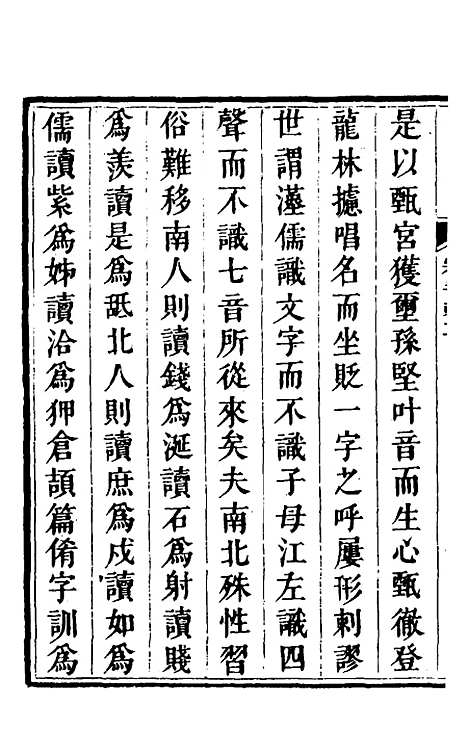 是以甄宮獲璽孫堅叶音而生心甄徹登
龍林攄唱名而坐貶一字之呼屢形刺謬
世謂漢儒識文字而不識子母江左識四
聲而不識七音所從來矣夫南北殊性習
俗難移南人則讀錢爲涎讀石爲射讀賤
爲羨讀是爲舐北人則讀庶爲戍讀如爲
儒讀紫爲姊讀洽爲狎倉頡篇倄字訓爲